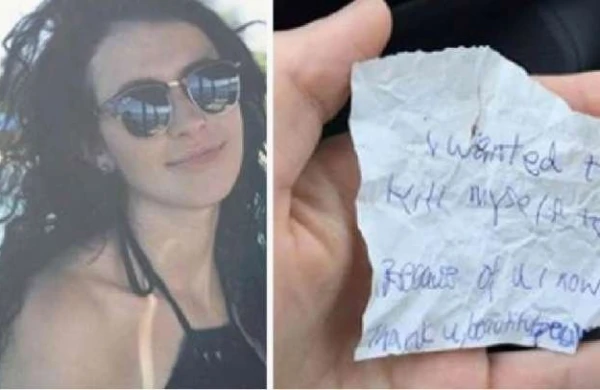 I wanted t
kill myself to
Because of u I now
Thank u beautiful